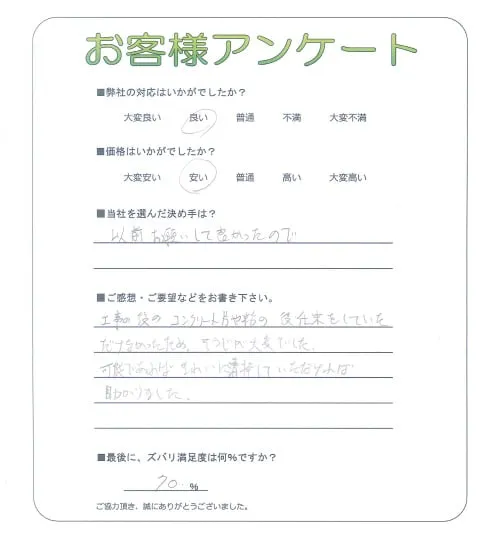 お客様アンケート
■弊社の対応はいかがでしたか？
大変良い 良い 普通 不満 大変不満
■価格はいかがでしたか？
大変安い 安い 普通 高い 大変高い
■当社を選んだ決め手は？
以前お願いして良かったので
■ご感想・ご要望などをお書き下さい。
工事の後のコンクリート片や粉の後仕末をしていた
だけなかったため、そうじが大変でした。
可能であればきれいに清掃していただければ
助かりました。
■最後に、ズバリ満足度は何%ですか？
70 %
ご協力頂き、誠にありがとうございました。